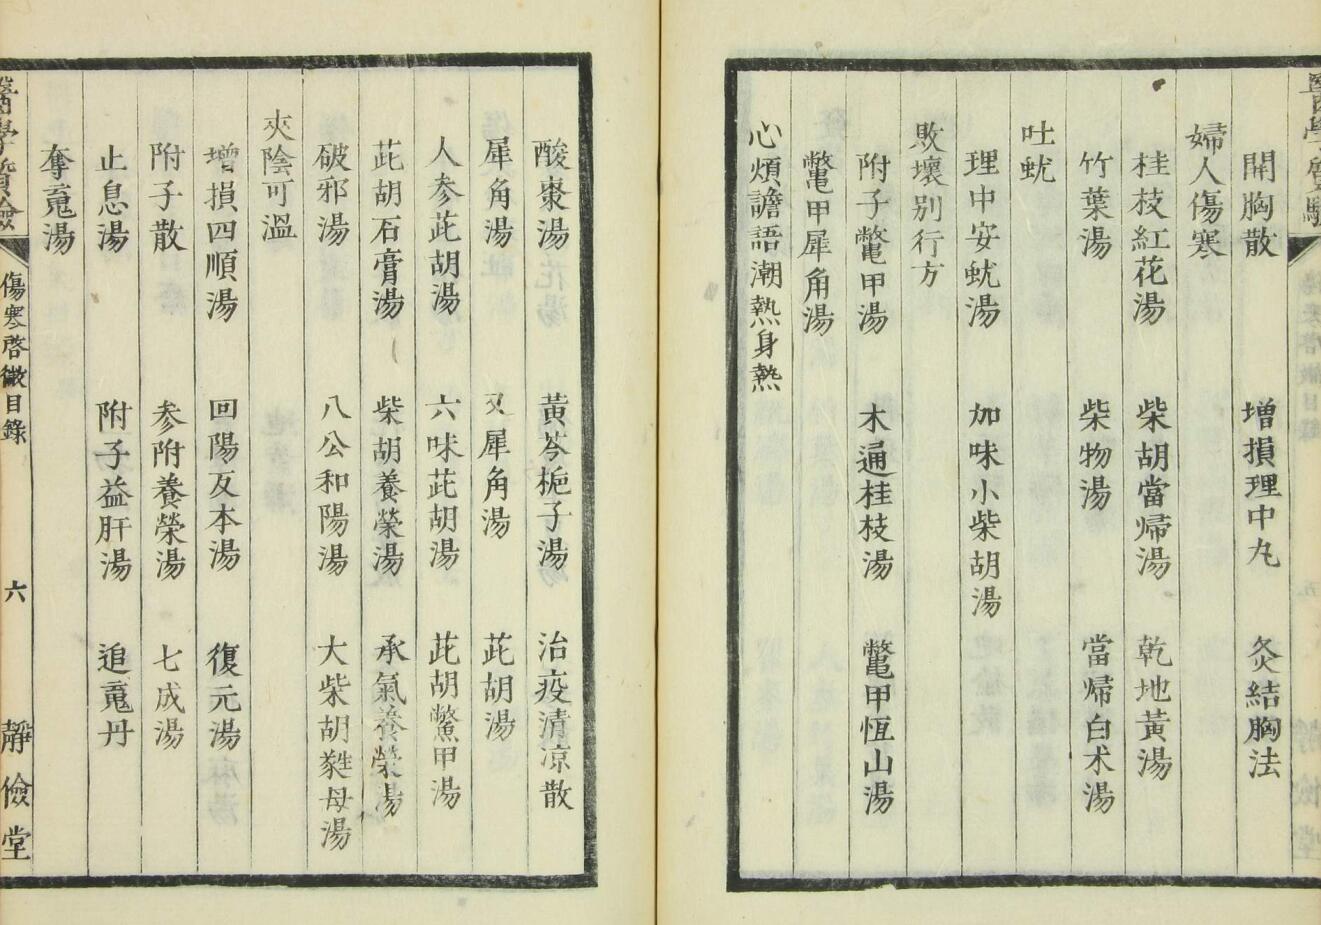 開胸散 增損理中丸 灸結胸法
婦人傷寒
桂枝紅花湯 柴胡當歸湯 乾地黃湯
竹葉湯 柴物湯 當歸白术湯
吐蚘
理中安蚘湯 加味小柴胡湯
敗壞別行方
附子鼈甲湯 木通桂枝湯 鼈甲恆山湯
鼈甲犀角湯
心煩譫語潮熱身熱
酸棗湯 黃芩梔子湯 治疫清凉散
犀角湯 又犀角湯 茈胡湯
人参茈胡湯 六味茈胡湯 茈胡鱉甲湯
茈胡石膏湯 柴胡養榮湯 承氣養榮湯
破邪湯 八公和陽湯 大柴胡甤母湯
夾陰可溫
增損四順湯 回陽反本湯 復元湯
附子散 参附養榮湯 七成湯
止息湯 附子益肝湯 追䰟丹
奪䰟湯
醫學質驗 傷寒啓微目錄 六 靜儉堂